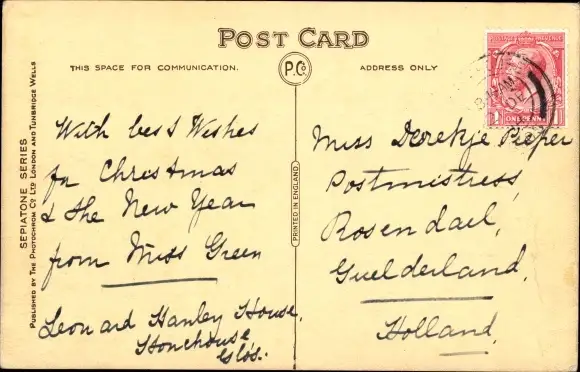 POST CARD
THIS SPACE FOR COMMUNICATION.
P.Co
ADDRESS ONLY
POSTAGE REVENUE
ONE PENNY
With best Wishes
for Christmas
& the New Year
from Miss Green
Leonard Hanley House,
Stonehouse
Glos.
Miss Derekje Pieper
Postmistress,
Rosendael,
Guelderland,
Holland,
PRINTED IN ENGLAND.
SEPIATONE SERIES
PUBLISHED BY THE PHOTOCHROM CO LTD LONDON AND TUNBRIDGE WELLS